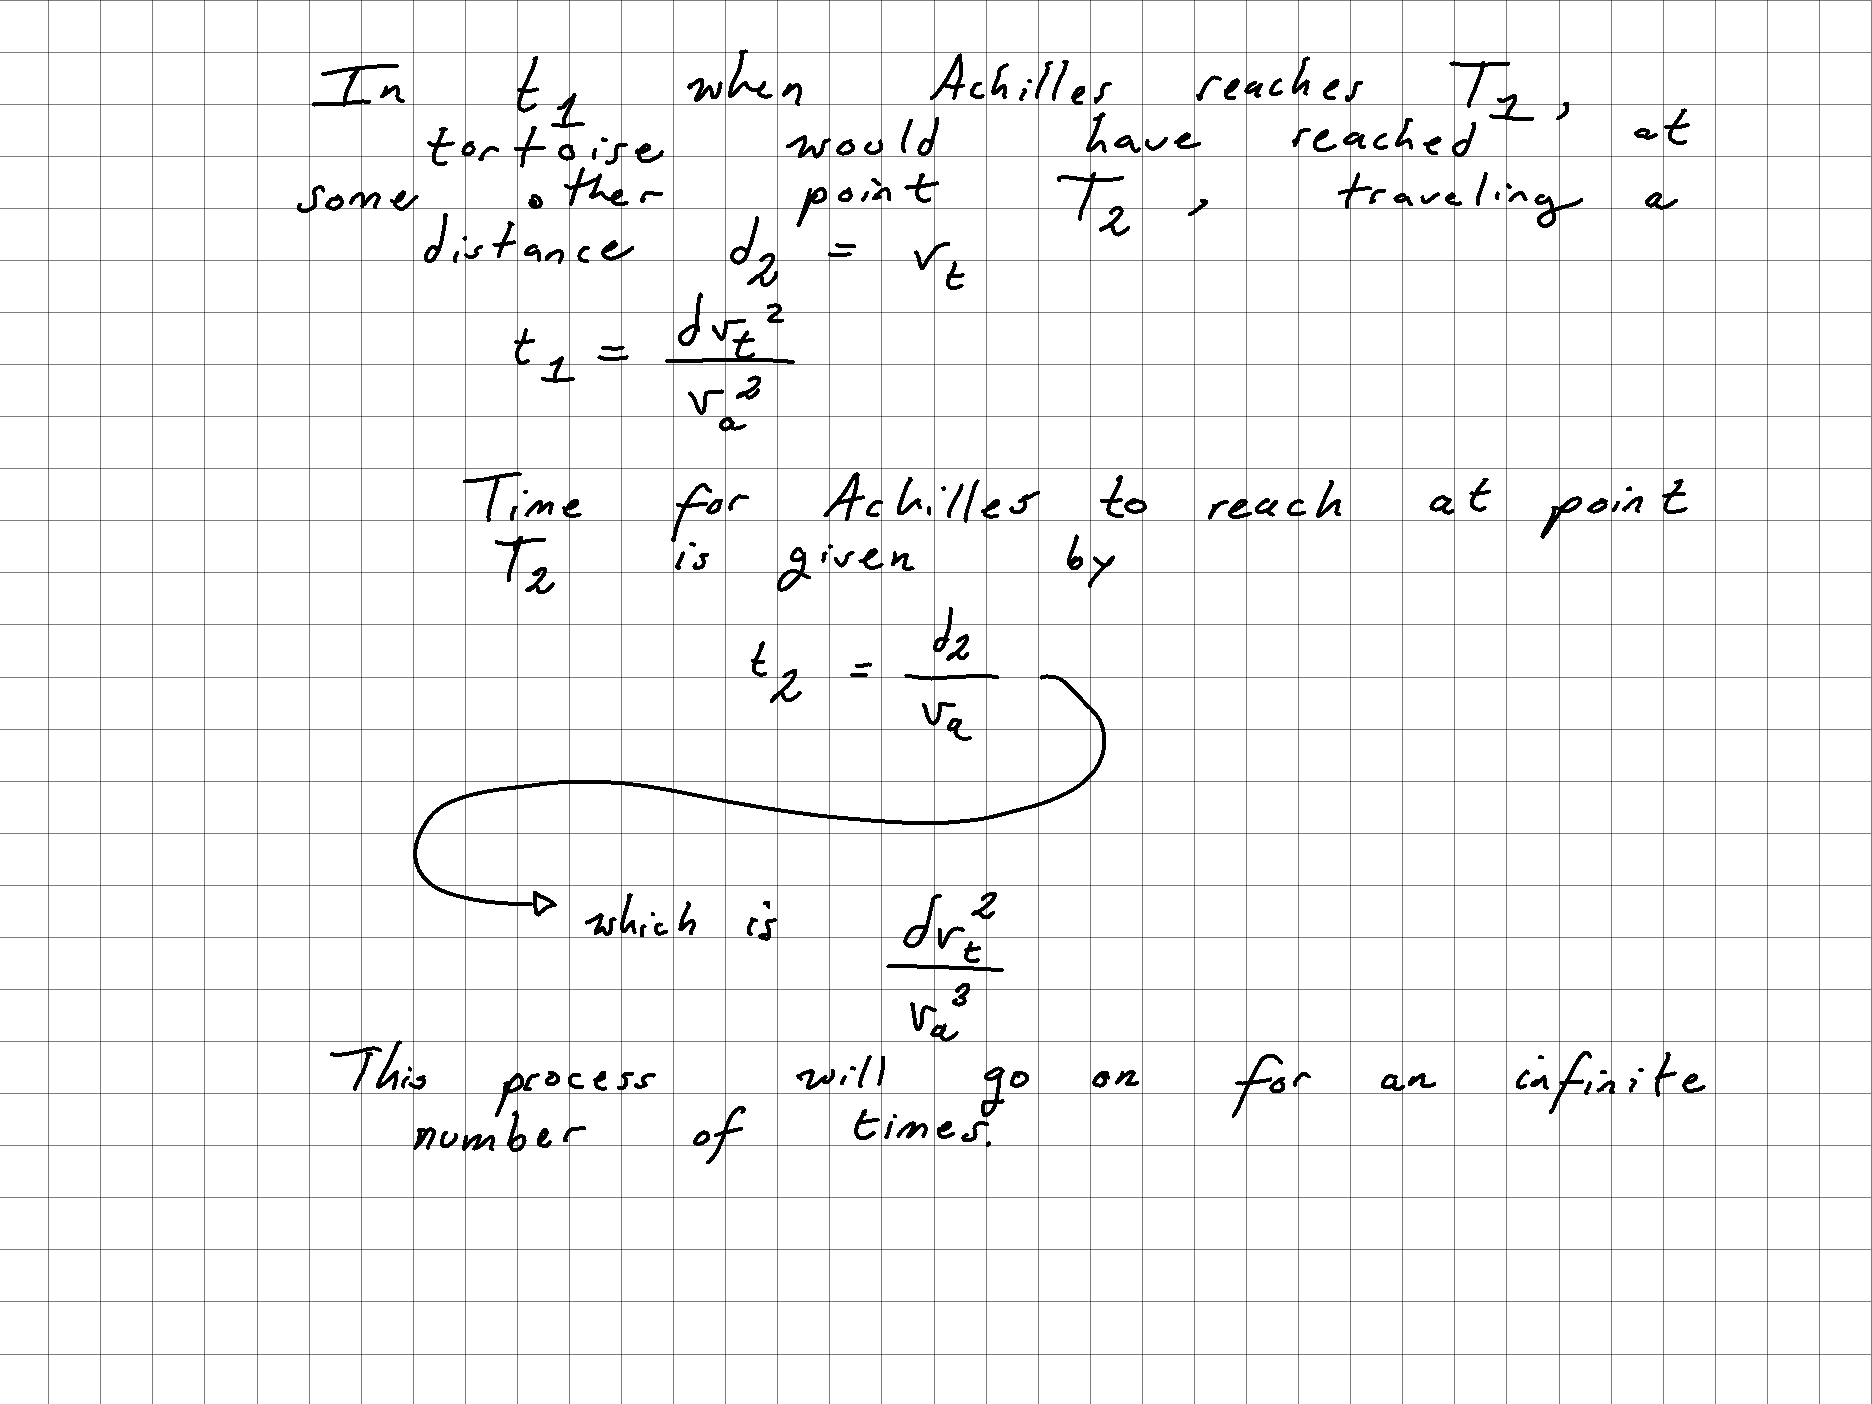 In t₁ when Achilles reaches T₁,
tortoise would have reached at
some other point T₂, traveling a
distance d₂ = v_t
t₁ = \frac{d v_t^2}{v_a^2}
Time for Achilles to reach at point
T₂ is given by
t₂ = \frac{d_2}{v_a}
which is \frac{d v_t^2}{v_a^3}
This process will go on for an infinite
number of times.